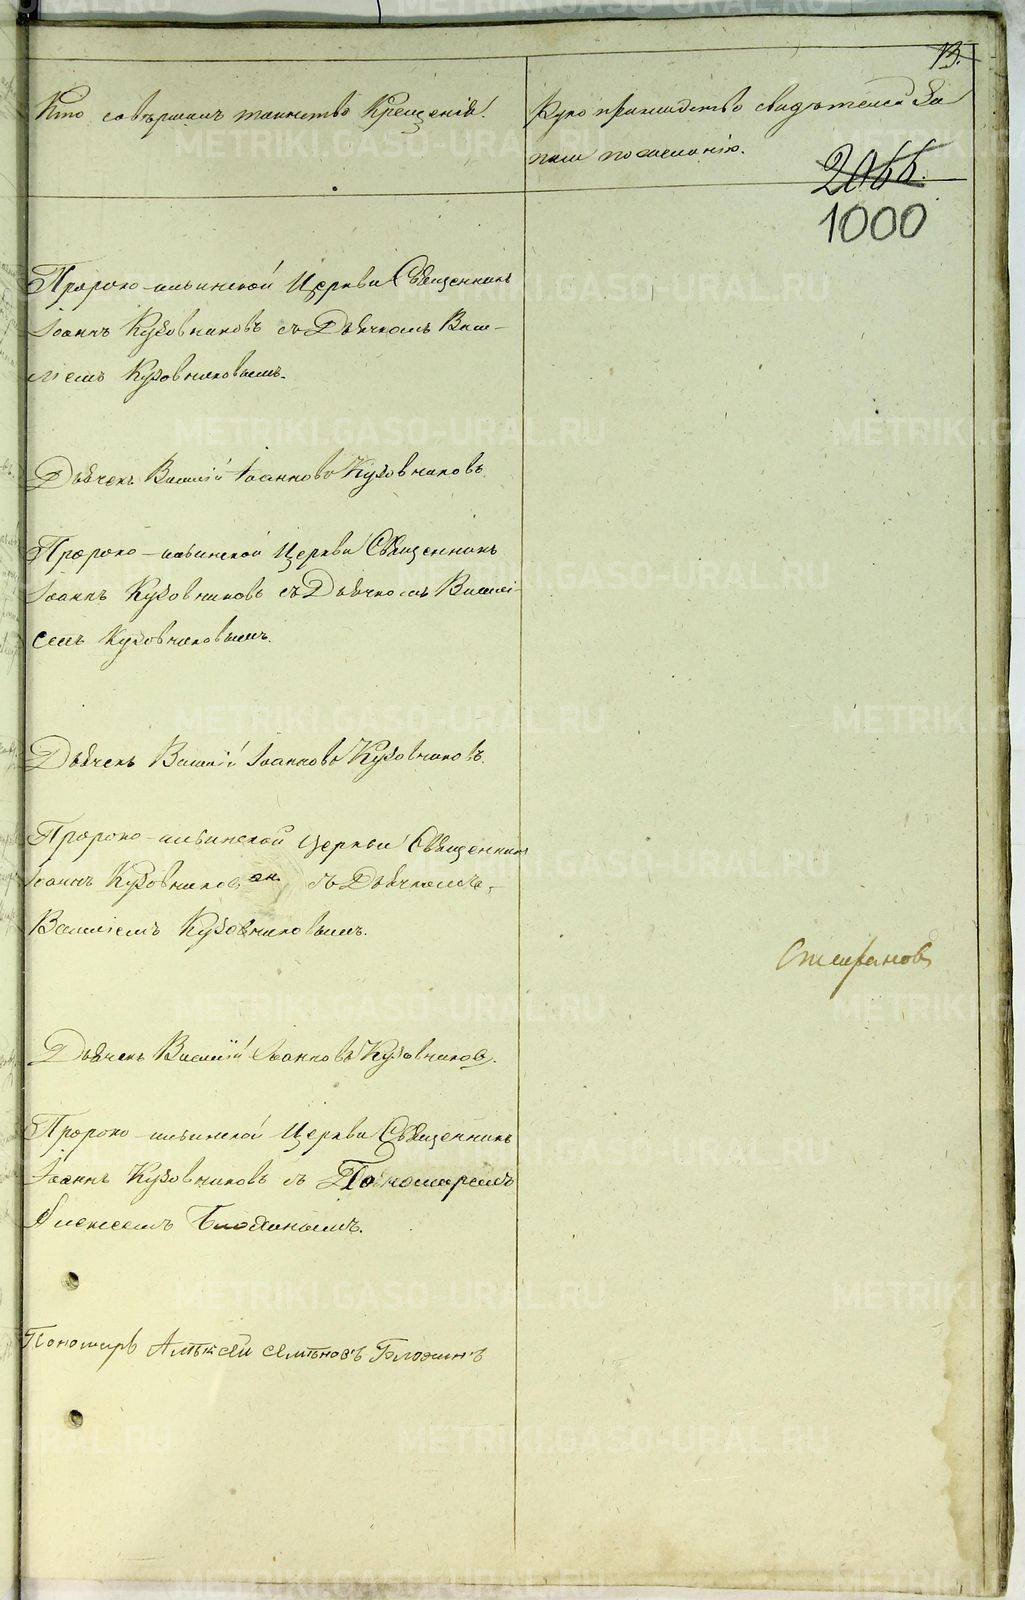 13.
Кто совершалъ таинство Крещенія.
Рукоприкладство свидѣтелей за
писи по желанію.
2055.
1000
Пророко-ильинской Церкви Священникъ
Іоаннъ Кузовниковъ съ Дьячкомъ Васи-
ліемъ Кузовниковымъ.
Дьячекъ Василій Іоанновъ Кузовниковъ.
Пророко-ильинской Церкви Священникъ
Іоаннъ Кузовниковъ съ Дьячкомъ Василі-
емъ Кузовниковымъ.
Дьячекъ Василій Іоанновъ Кузовниковъ.
Пророко-ильинской Церкви Священникъ
Іоаннъ Кузовников съ Дьячкомъ
Василіемъ Кузовниковымъ.
Стефановъ
Дьячекъ Василій Іоанновъ Кузовников.
Пророко-ильинской Церкви Священникъ
Іоаннъ Кузовниковъ съ Пономаремъ
Алексеемъ
Пономарь Алѣксѣй Сѣмѣновъ
METRIKI.GASO-URAL.RU